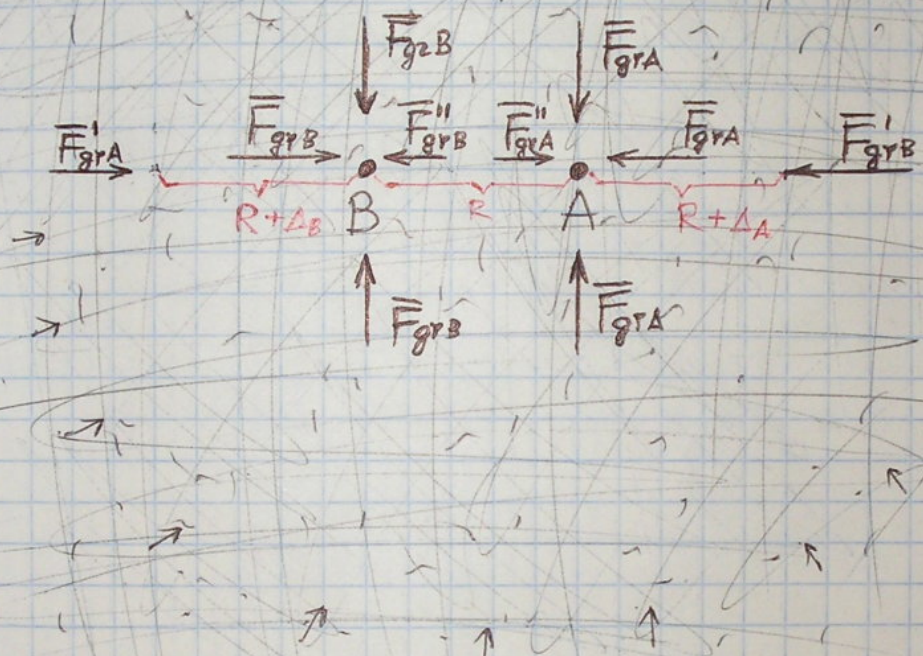 F̅grB F̅grA
F̅'grA F̅grB F̅"grB F̅"grA F̅grA F̅'grB
R+ΔB B R A R+ΔA
F̅grB F̅grA